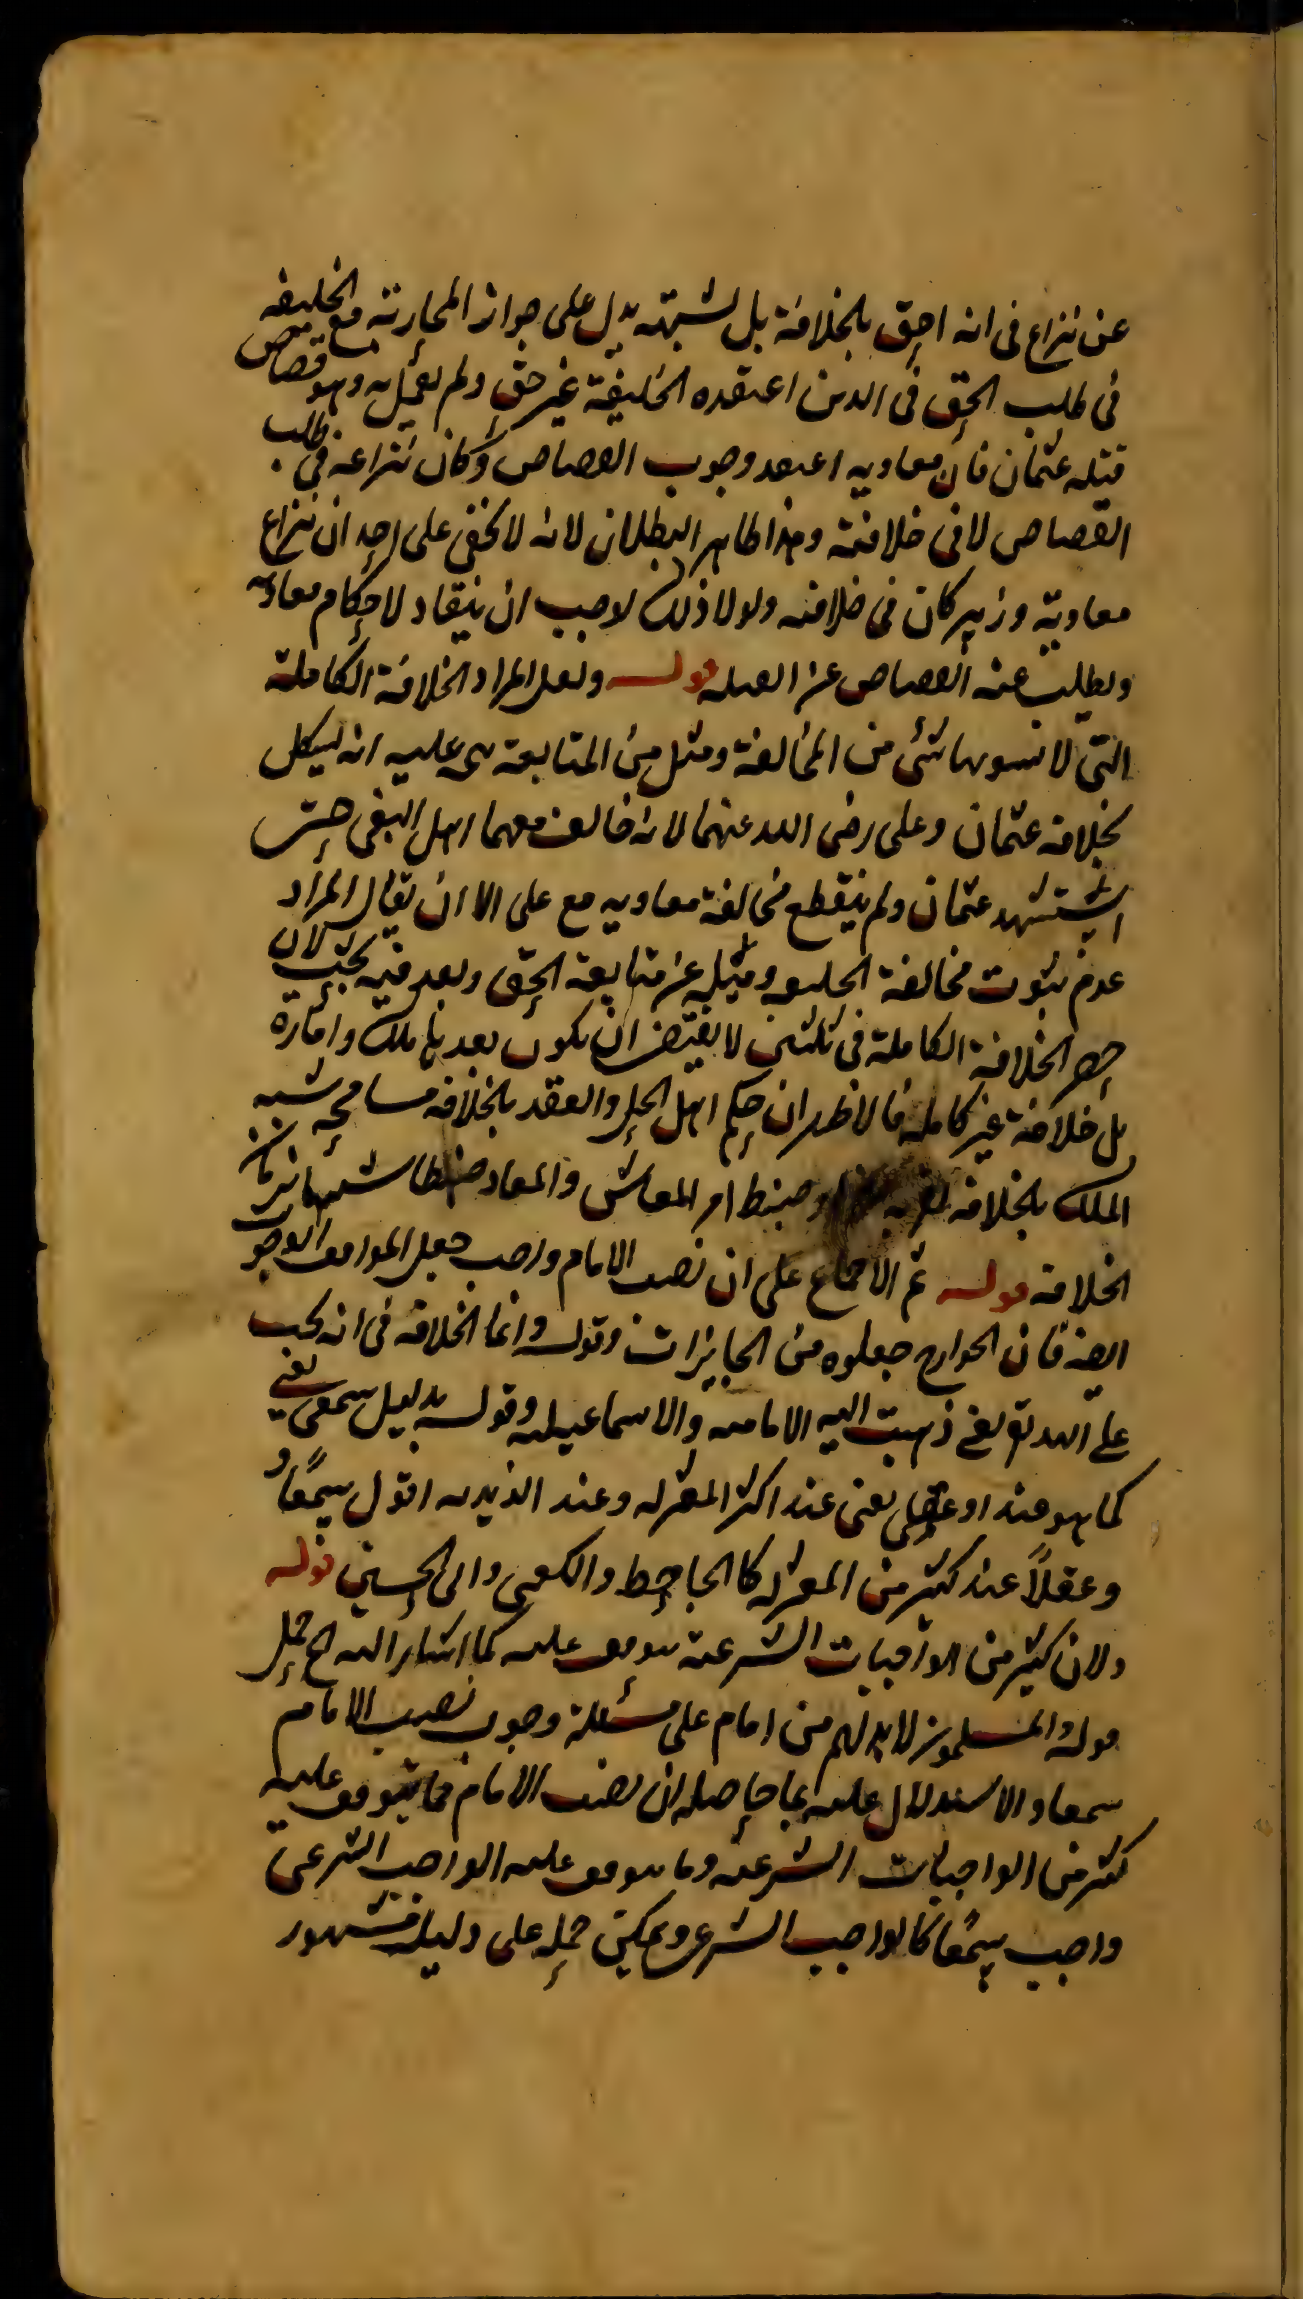 عن نزاع فى انه احق بالخلافة بل لشبهة يدل على جواز المحاربة مع الخليفه
فى طلب الحق فى الدين اعتقده الخليفة غير حق ولم يعمل به وهو قصاص
قتله عثمان فان معاويه اعتقد وجوب القصاص وكان نزاعه فى طلب
القصاص لا فى خلافته وهذا ظاهر البطلان لانه لا يخفى على احد ان نزاع
معاوية وزبير كان فى خلافته ولولا ذلك لوجب ان ينقاد لاحكام معاويه
ويطلب عنه القصاص عن القتله قوله ولعل المراد الخلافة الكاملة
التى لا يشوبها شئ من المخالفة وميل من المتابعة يرد عليه انه يشكل
بخلافة عثمان وعلى رضى الله عنهما لانه خالف معهما اهل البغى حتى
استشهد عثمان ولم ينقطع مخالفة معاويه مع على الا ان يقال المراد
عدم ثبوت مخالفة الخليفه وميله عن متابعة الحق وبعد فيه بحث لان
حصر الخلافة الكاملة فى ثلثين لا يقتضى ان يكون بعدها ملك وامارة
بل خلافة غير كامله فالاظهر ان حكم اهل الحل والعقد بالخلافه مسامحه شبه
الملك بالخلافه لقربه وضبط امر المعاش والمعاد ضبطا شبيها بزمان
الخلافة قوله ثم الاجماع على ان نصب الامام واجب جعل المواقف الوجوب
ايضه فان الخوارج جعلوه من الجايزات وقوله وانما الخلافه فى انه يجب
على الله تع يعنى ذهبت اليه الاماميه والاسماعيليه وقوله بدليل سمعى يعنى
كما هو عندنا او عقلى يعنى عند اكثر المعتزله وعند الزيديه اقول سمعًا و
وعقلاً عند كثير من المعتزله كالجاحظ والكعبى وابى الحسين قوله
ولان كثير من الواجبات الشرعية يتوقف عليه كما اشار اليه الخ حمل
قوله والمسلمون لابد لهم من امام على مسئلة وجوب نصب الامام
سمعا والاستدلال عليه بما حاصله ان نصب الامام مما يتوقف عليه
كثير من الواجبات الشرعيه وما يتوقف عليه الواجب الشرعى
واجب سمعًا كالواجب الشرعى ويمكن حمله على دليل مشهور